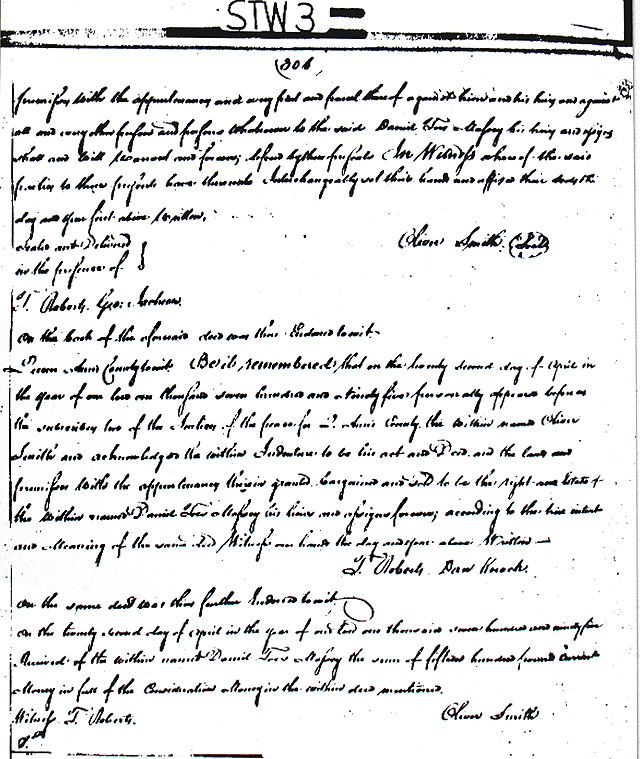 STW 3
(306
premises with the appurtenances and every part and parcel thereof against him and his heirs and against
all and every other person and persons whatsoever to the said Daniel Toas Massey his heirs and assigns
shall and will Warrant and forever defend by these presents In Witness whereof the said
parties to these presents have hereunto Interchangeably set their hands and affixed their seals the
day and year first above Written,
Sealed and Delivered
in the presence of } Oliver Smith (Seal)
T. Roberts. Geo: Jackson
On the back of the aforesaid deed was thus Endorsed towit
Queen Anns County towit Be it remembered that on the twenty second day of April in
the year of our lord one thousand seven hundred and Ninety five personally appeared before us
the subscribers two of the Justices of the peace for Q. Anns County the within named Oliver
Smith and acknowledged the within Indenture to be his act and Deed and the land and
premises with the appurtenances therein granted bargained and sold to be the right and Estate of
the within named Daniel Toas Massey his heirs and assigns forever, according to the true intent
and Meaning of the same deed Witness our hands the day and year above Written
T. Roberts
On the same deed was thus further Endorsed towit
On the twenty second day of April in the year of our lord one thousand seven hundred and ninety five
Received of the within named Daniel Toas Massey the sum of fifteen hundred pounds Current
Money in full of the Consideration Money in the within deed mentioned.
Witness T. Roberts. Oliver Smith